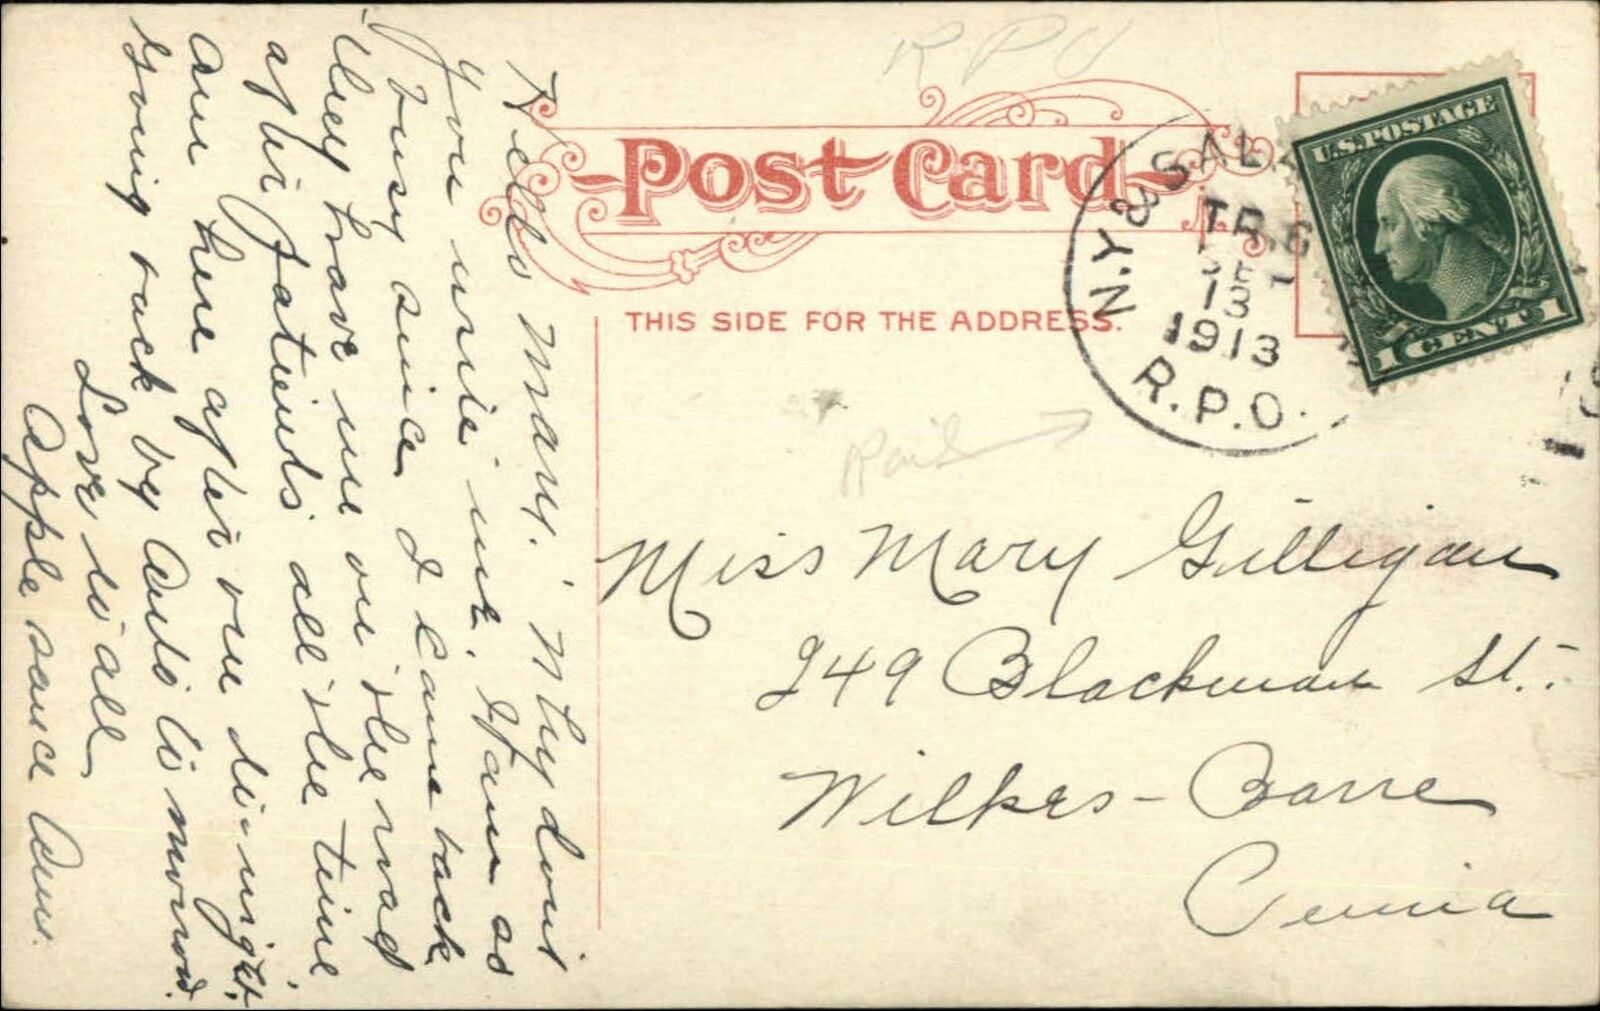 Hello Mary. Why dont
you write me. I am as
busy since I came back
They have me on the road
after patients all the time,
Am here after one to-night.
going back by Auto to morrow.
Love to all
Apple sauce Ann.
RPO
Post Card
THIS SIDE FOR THE ADDRESS.
N.Y. & SALA
TR.6
SEP
13
1913
R.P.O.
U.S. POSTAGE
1 CENT 1
Rail
Miss Mary Gilligan
249 Blackman St.
Wilkes-Barre
Penna